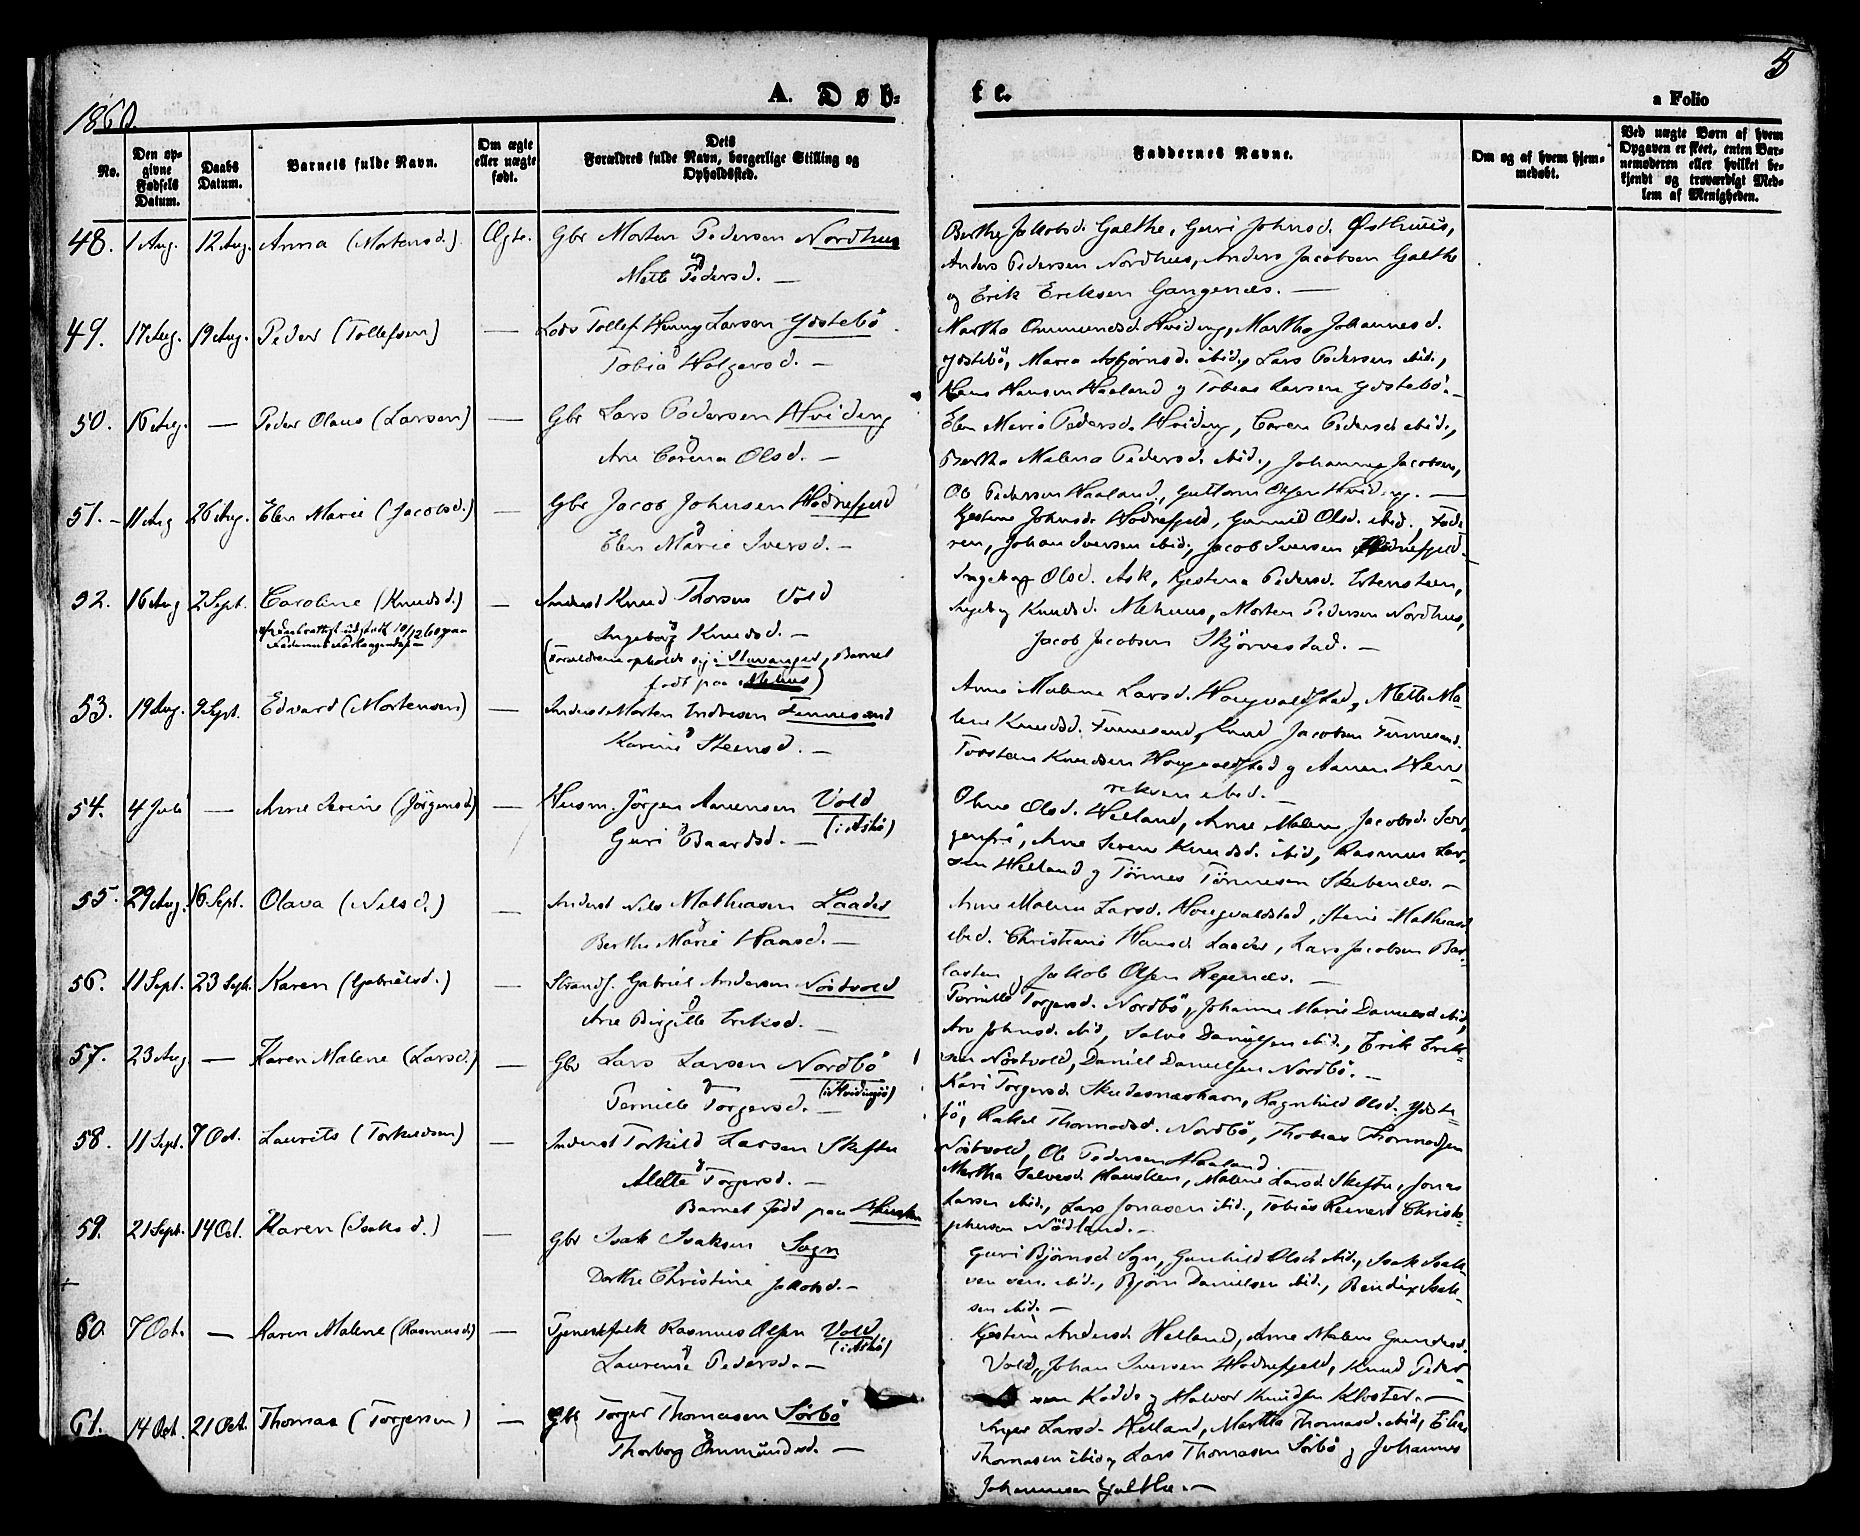 5
1860.
A. Døb-
te.
a Folio
No.
Den op-
givne
Fødsels
Datum.
Daabs
Datum.
Barnets fulde Navn.
Om ægte
eller uægte
født.
Dets
Forældres fulde Navn, borgerlige Stilling og
Opholdssted.
Faddernes Navne.
Om og af hvem hjem-
medøbt.
Ved uægte Børn af hvem
Opgaven er skeet, enten Bar-
nemoderen eller hvilket be-
kjendt og troværdigt Med-
lem af Menigheden.
48. 1 Aug. 12 Aug. Anna (Mortensd.) Ægte. Gbr Morten Pedersen Nordhus
Mette Pedersd. —
Berthe Jakobsd. Galthe, Guri Johnsd. Østhuus,
Anders Pedersen Nordhus, Anders Jacobsen Galthe
og Erik Eriksen Gangenæs. —
49. 17 Aug. 19 Aug. Peder (Tollefsen) — Lods Tollef Henning Larsen Ydstebö.
Tobia Holgersd. —
Martha Ommundsd. Hviding, Martha Johannesd.
Ydstebö, Maria Asbjørnsd. ibid., Lars Pedersen ibid.,
Hans Hansen Haaland og Tobias Larsen Ydstebö. —
50. 16 Aug. — Peder Olaus (Larsen) — Gbr Lars Pedersen Hviding
Ane Carina Olsd. —
Elen Marie Pedersd. Hviding, Caren Pedersd ibid.,
Bertha Malena Pedersd. ibid., Johannes Jacobsen,
Ole Pedersen Haaland, Guttorm Olsen Hviding. —
51. 11 Aug 26 Aug. Elen Marie (Jacobsd.) — Gbr Jacob Johnsen Hodnefjeld
Elen Marie Iversd. —
Gjestine Johnsd. Hodnefjeld, Gunnild Olsd. ibid., Fade-
ren, Johan Iversen ibid., Jacob Iversen Hodnefjeld.
52. 16 Aug 2 Sept. Caroline (Knudsd.) — Inderst Knud Thorsen Vold
Ingeborg Knudsd. —
(Forældrene opholde sig i Stavanger, Barnet
født paa Mehus)
Ingeborg Olsd. Ask, Gjestina Pedersd. Ertenstein,
Ingeborg Knudsd. Mehuus, Morten Pedersen Nordhus,
Jacob Jacobsen Skjørvestad. —
53. 19 Aug. 9 Sept. Edvard (Mortensen) — Inderst Morten Endresen Finnesand
Karine Steensd. —
Anne Malene Larsd. Hougvaldstad, Mette Ma-
lene Knudsd. Finnesand, Knud Jacobsen Finnesand.
Torsten Knudsen Hougvaldstad og Aanen Hen-
riksen ibid. —
54. 4 Juli — Anne Serine (Jörgensd.) — Husm. Jörgen Aanensen Vold
(i Askö)
Guri Baardsd. —
Oline Olsd. Helland, Anne Malene Jacobsd. Sor-
genfri, Anne Serene Knudsd. ibid, Rasmus Lar-
sen Helland og Tönnes Tönnesen Skibenes. —
55. 29 Aug. 16 Sept. Olava (Nilsd.) — Inderst Nils Mathiasen Laader
Berthe Marie Hansd. —
Anne Malene Larsd. Hougvaldstad, Stine Mathiasd
ibid. Christiane Hansd. Laader, Lars Jacobsen Bar-
lasten og Jakob Olsen Regenæs. —
56. 11 Sept. 23 Sept. Karen (Gabrielsd.) — Strands. Gabriel Andersen Nöstvold
Ane Birgitte Eriksd. —
Pernille Torgersd. Nordbö, Johanne Marie Danielsd ibid,
Ane Johnsd. ibid, Salve Danielsen ibid., Erik Erik-
sen Nöstvold, Daniel Danielsen Nordbö. —
57. 23 Aug — Karen Malene (Larsd.) — Gbr Lars Larsen Nordbö
(i Hvidingsö)
Pernille Torgersd. —
Kari Torgersd. Skudesneshavn, Ragnhild Olsd. Ydste-
bö, Rakel Thormodsd. Nordbö, Thobias Thormodsen
Nöstvold, Ole Pedersen Haaland
58. 11 Sept. 7 Oct. Laurits (Torkildsen) — Inderst Torkild Larsen Skeftu
Mette Torgersd. —
Barnet född paa Hausken
Martha Salvesd. Hausken, Malene Larsd. Skeftu, Jonas
Larsen ibid., Lars Jonasen ibid., Tobias Reinert Christo-
phersen Nödland. —
59. 21 Sept. 14 Oct. Karen (Isaksd.) — Gbr Isak Isaksen Sogn
Dorthe Christine Jakobsd. —
Guri Björnsd Sogn, Gunhild Olsd. ibid., Isak Isak-
sen sen. ibid., Bjørn Danielsen ibid., Bendix Isak-
sen ibid. —
60. 7 Oct. — Karen Malene (Rasmusd.) — Tjenestfolk Rasmus Olsen Vold
(i Askö)
Laurense Pedersd. —
Gjestine Andersd. Helland, Anne Malene Gundersd.
Vold, Johan Iversen Hodnefjeld, Knud Peder-
sen Kodde og Halvor Knudsen Kloster. —
61. 14 Oct. 21 Oct. Thomas (Torgersen) — Gbr Torger Thomasen Sörbö
Thorborg Ommundsd. —
Inger Larsd. Helland, Martha Thomasd. ibid, Elias
Thomasen ibid, Lars Thomasen Sörbö og Johannes
Johannesen Galthe. —